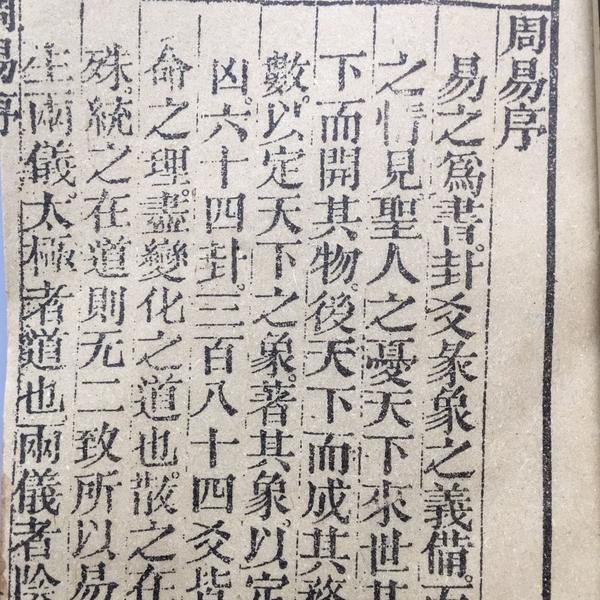 周易序
易之爲書。卦爻彖象之義備。
之情見。聖人之憂天下來世其
下而開其物。後天下而成其務
數。以定天下之象。著其象。以定
凶。六十四卦。三百八十四爻皆
命之理。盡變化之道也。散之在
殊。統之在道則无二致所以易
生兩儀。太極者道也兩儀者陰
周易序